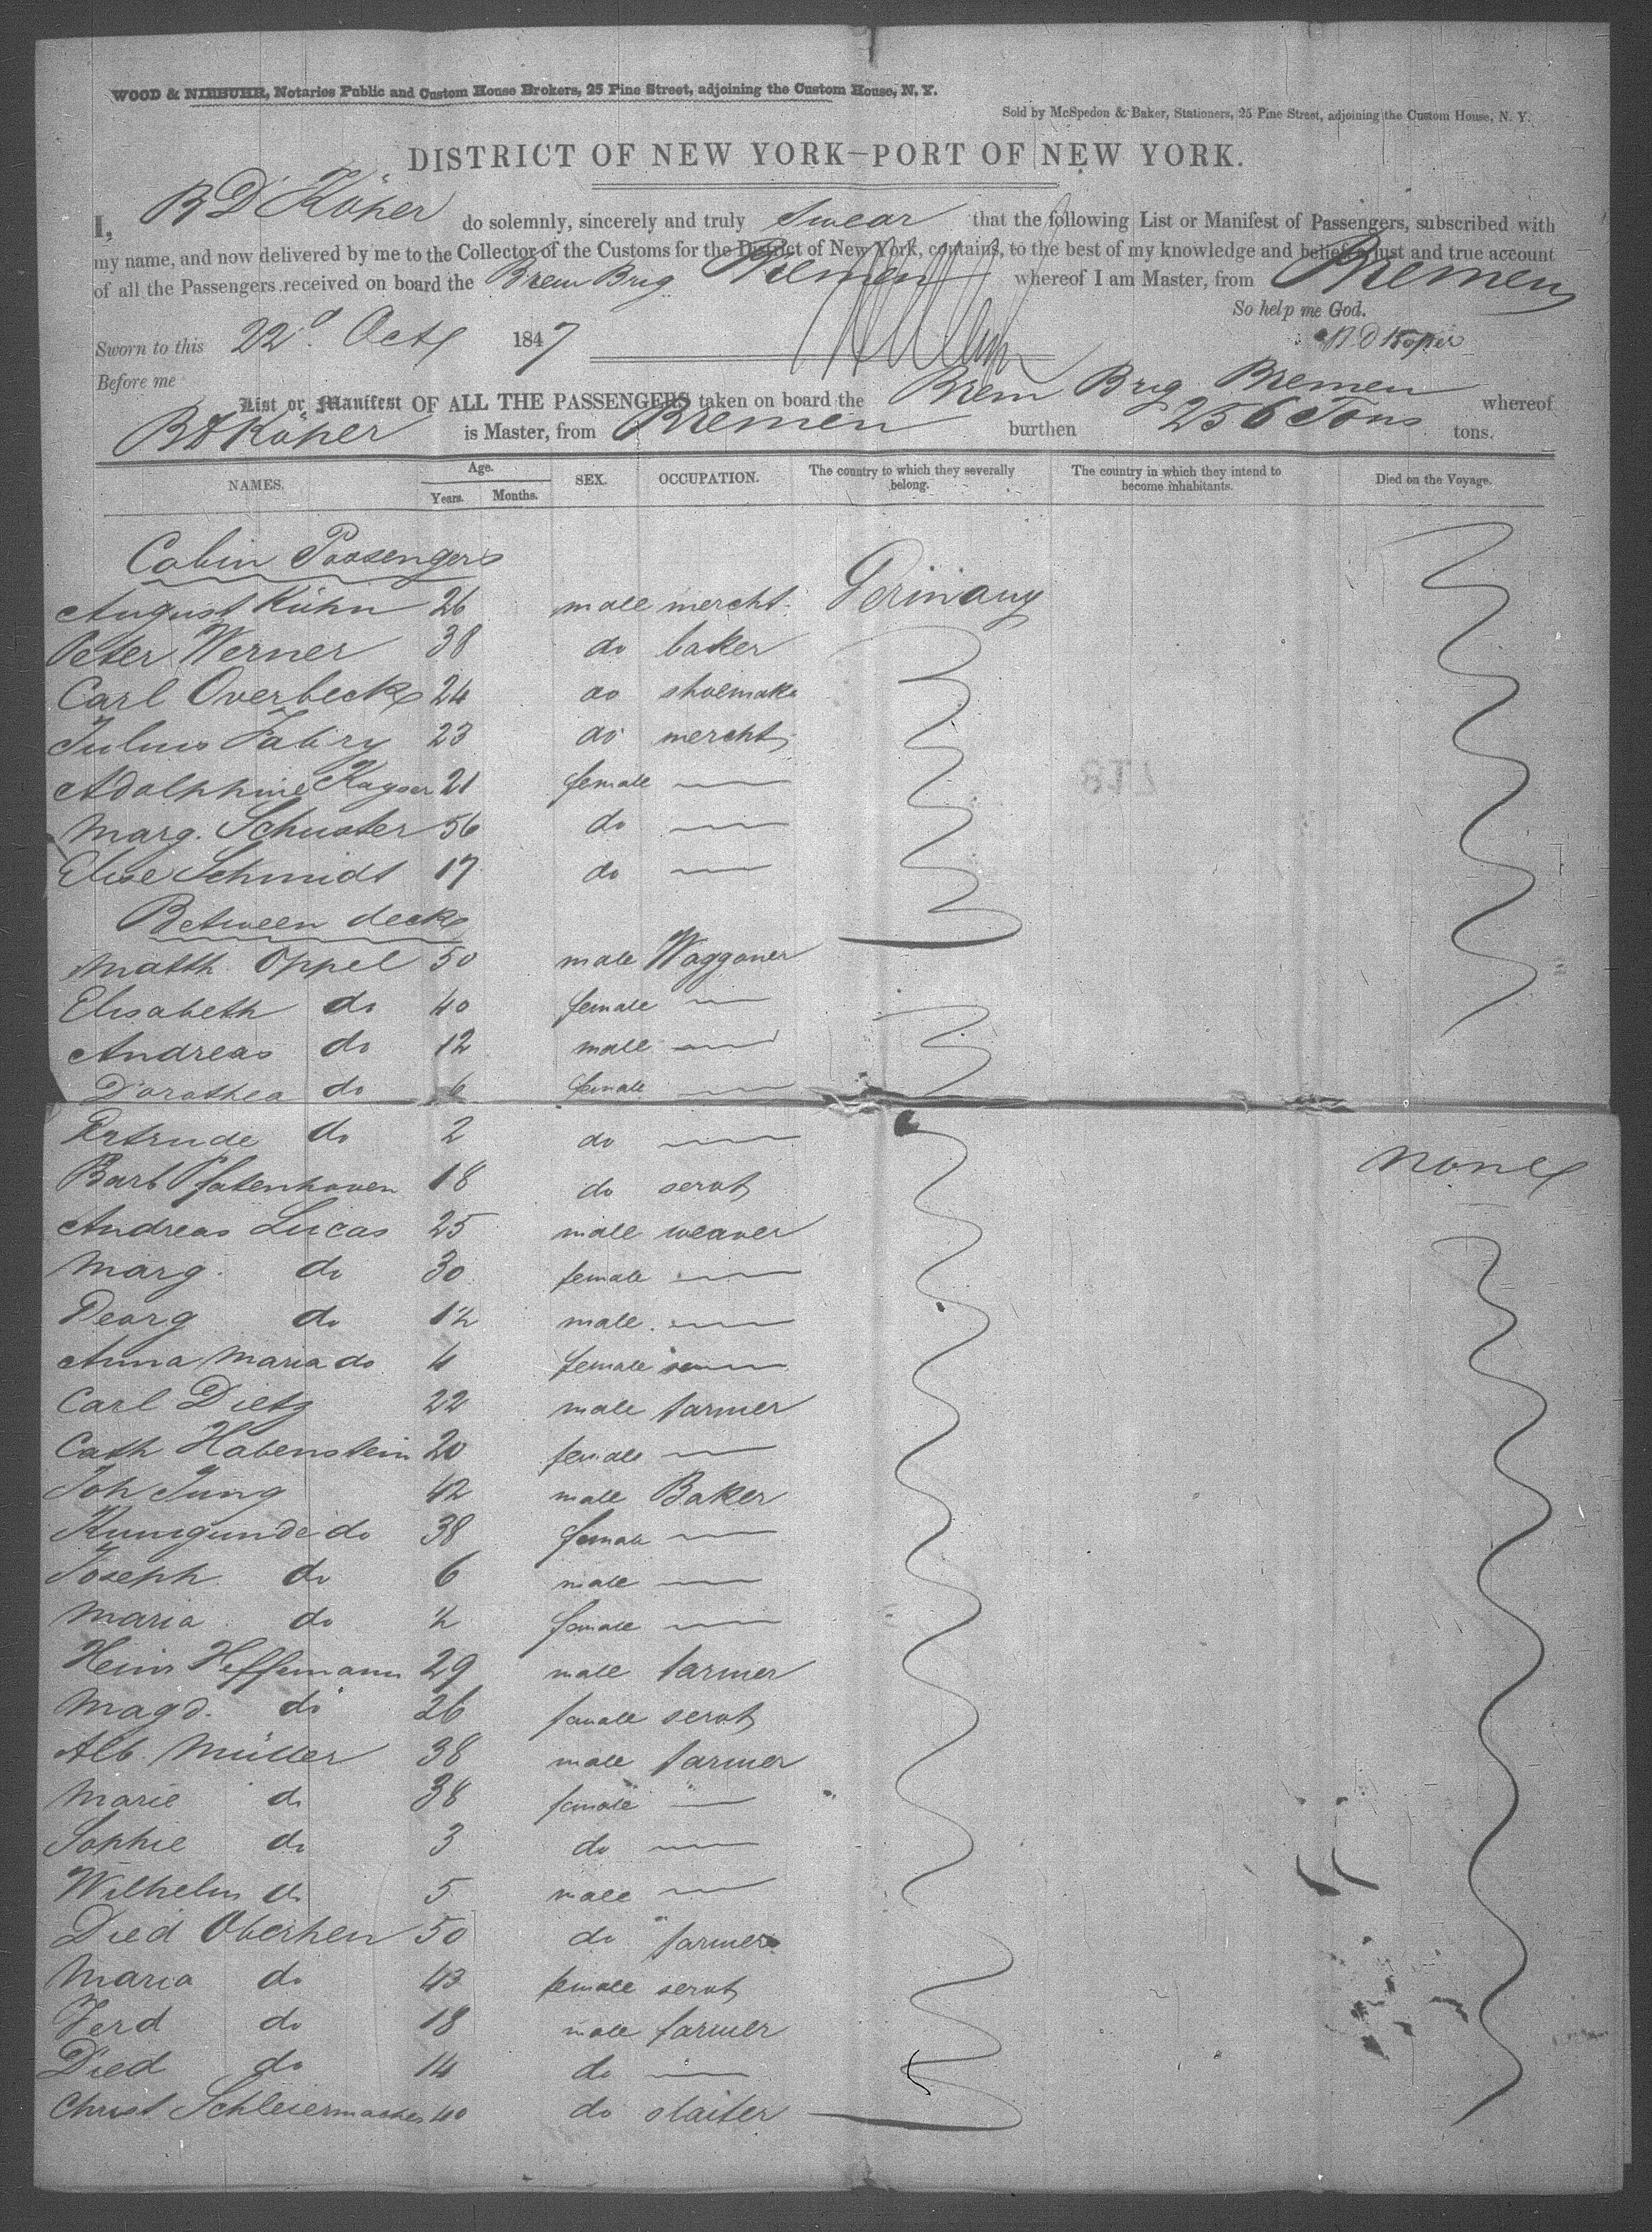 WOOD & NIEBUHR, Notaries Public and Custom House Brokers, 25 Pine Street, adjoining the Custom House, N. Y.
Sold by McSpedon & Baker, Stationers, 25 Pine Street, adjoining the Custom House, N. Y.
DISTRICT OF NEW YORK—PORT OF NEW YORK.
I, B D Köper do solemnly, sincerely and truly swear that the following List or Manifest of Passengers, subscribed with
my name, and now delivered by me to the Collector of the Customs for the District of New York, contains, to the best of my knowledge and belief, a just and true account
of all the Passengers received on board the Brem Brig Bremen whereof I am Master, from Bremen
So help me God.
Sworn to this 22d Oct 1847 B D Koper
Before me
List or Manifest OF ALL THE PASSENGERS taken on board the Brem Brig Bremen whereof
B D Köper is Master, from Bremen burthen 256 Tons tons.
NAMES. Age. Years. Months. SEX. OCCUPATION. The country to which they severally belong. The country in which they intend to become inhabitants. Died on the Voyage.
Cabin Passengers
August Kühn 26 male mercht. Germany
Peter Werner 38 do baker
Carl Overbeck 24 do shoemak
Julius Fabry 23 do mercht
Adolphine Kayser 21 female
Marg. Schuster 56 do
Elise Schmidt 17 do
Between deck
Matth. Oppel 50 male Waggoner
Elisabeth do 40 female
Andreas do 12 male
Dorothea do 6 female
Gertrude do 2 do
None
Barb 18 do servt
Andreas Lucas 25 male weaver
Marg. do 30 female
Georg do 1½ male
Anna Maria do 4 female
Carl Dietz 22 male farmer
Cath Habenstein 20 female
Joh Jung 42 male Baker
Kunigunde do 38 female
Joseph do 6 male
Maria do ½ female
Heinr Heffemann 29 male farmer
Magd. do 26 female servt
Alb. Müller 38 male farmer
Marie do 38 female
Sophie do 3 do
Wilhelm do 5 male
Died Oberhen 50 do farmer
Maria do 43 female servt
Ferd do 18 male farmer
Died do 14 do
Christ Schleiermacher 40 do slaiter